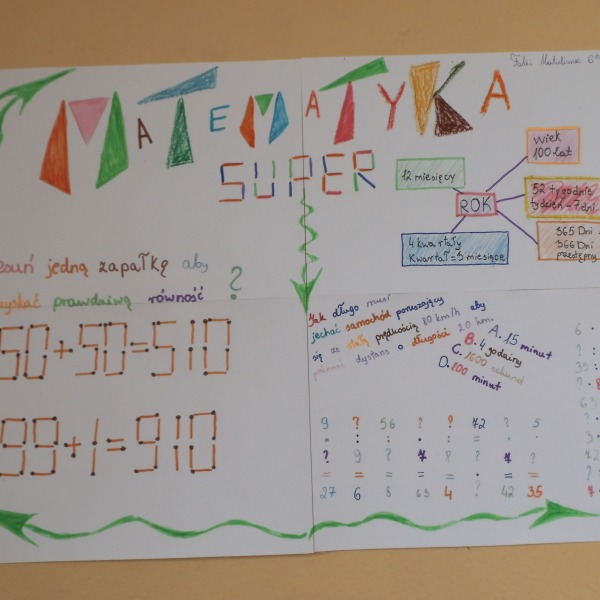 MATEMATYKA
SUPER
12 miesięcy
wiek
100 lat
52 tygodnie
tydzień - 7 dni
ROK
4 kwartały
kwartał = 3 miesiące
365 Dni
366 Dni
przestępny
jedną zapałkę aby
prawdziwą równość ?
50+50=510
99+1=910
Jak długo musi
jechać samochód poruszający
się ze stałą prędkością 80 km/h aby
pokonać dystans o długości 20 km.
A. 15 minut
B. 4 godziny
C. 1600 sekund
D. 100 minut
9 ? 56 ? ? 72 ? 5
· : : · : = · ·
? 9 ? 7 8 ? 7 ?
= = = = = · = =
27 6 8 63 4 ? 42 35